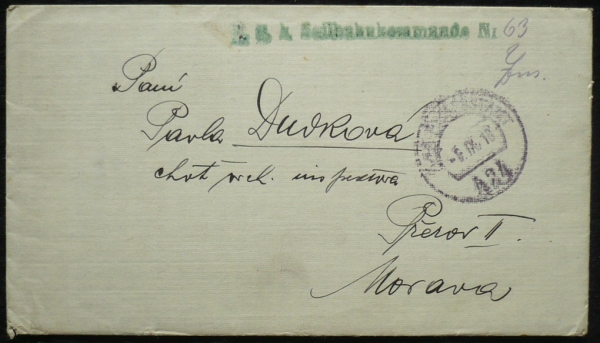 k. u. k. Seilbahnkommando Nr 63
Paní
Pavla Dudková
choť vrch. inspektora
Přerov II.
Morava
K.u.K. FELDPOSTAMT
-5.IX.18
424